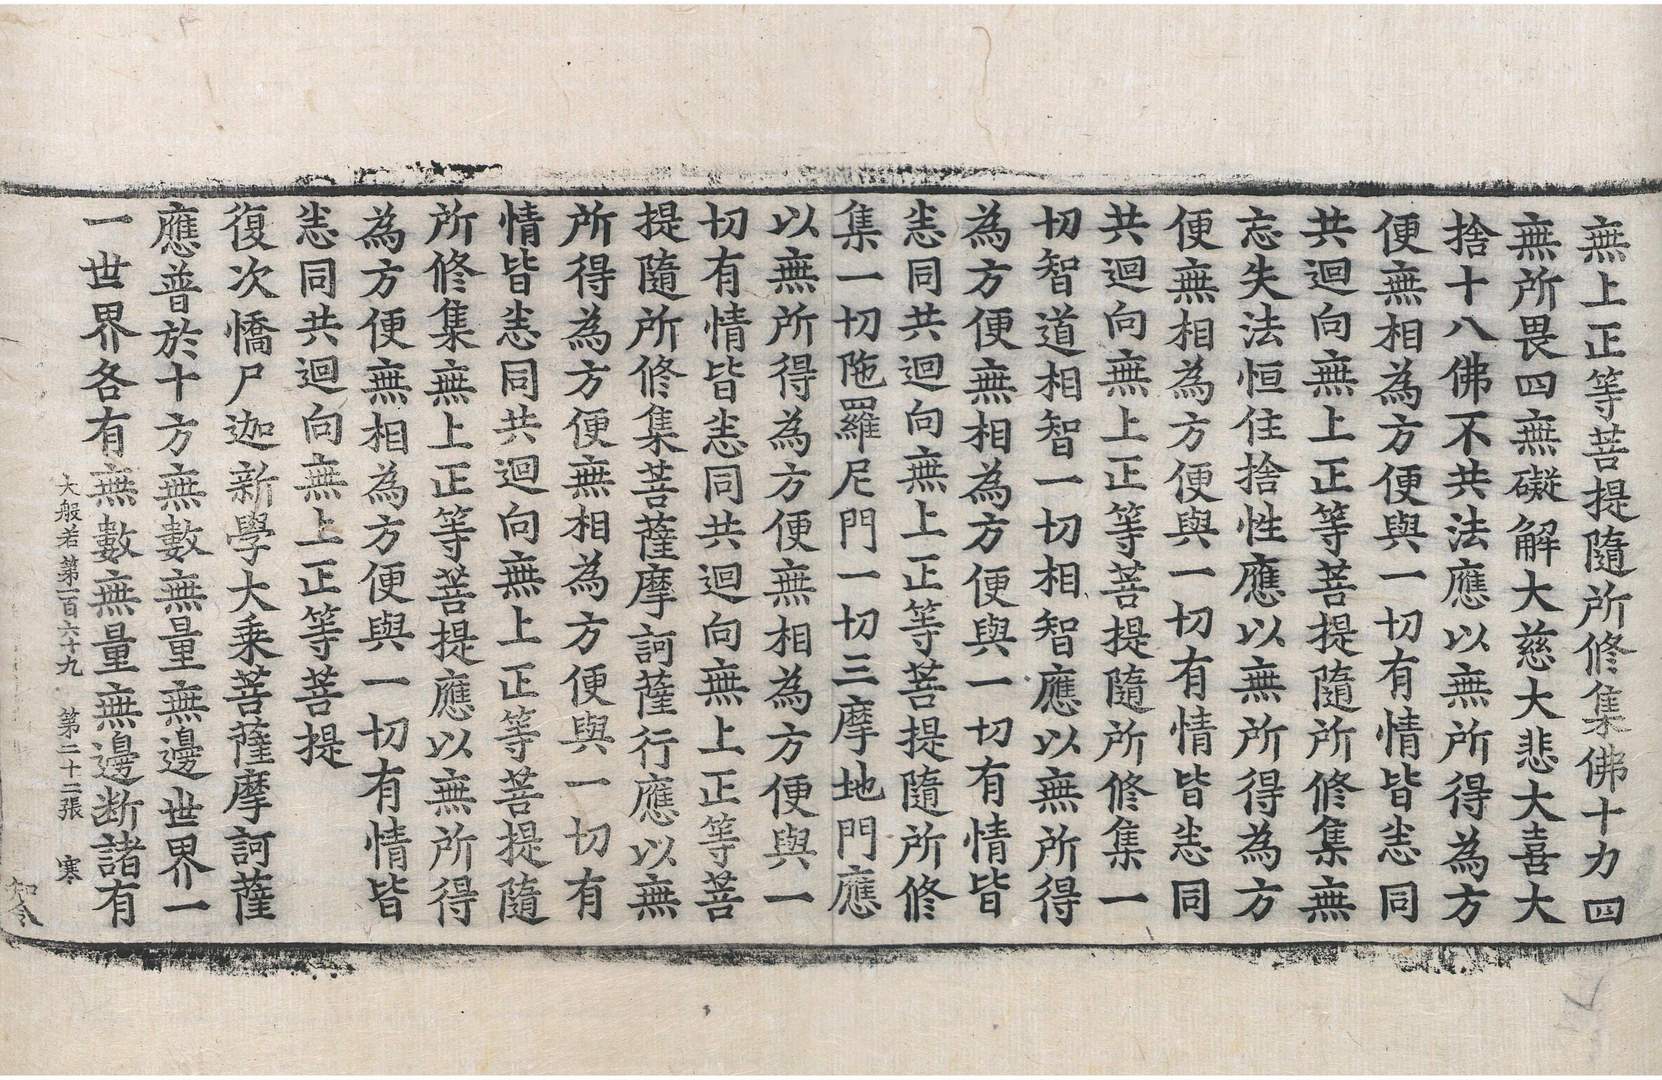 無上正等菩提隨所修集佛十力四
無所畏四無礙解大慈大悲大喜大
捨十八佛不共法應以無所得為方
便無相為方便與一切有情皆悉同
共迴向無上正等菩提隨所修集無
忘失法恒住捨性應以無所得為方
便無相為方便與一切有情皆悉同
共迴向無上正等菩提隨所修集一
切智道相智一切相智應以無所得
為方便無相為方便與一切有情皆
悉同共迴向無上正等菩提隨所修
集一切陁羅尼門一切三摩地門應
以無所得為方便無相為方便與一
切有情皆悉同共迴向無上正等菩
提隨所修集菩薩摩訶薩行應以無
所得為方便無相為方便與一切有
情皆悉同共迴向無上正等菩提隨
所修集無上正等菩提應以無所得
為方便無相為方便與一切有情皆
悉同共迴向無上正等菩提
復次憍尸迦新學大乗菩薩摩訶薩
應普於十方無數無量無邊世界一
一世界各有無數無量無邊断諸有
大般若第一百六十九 第二十二張 寒